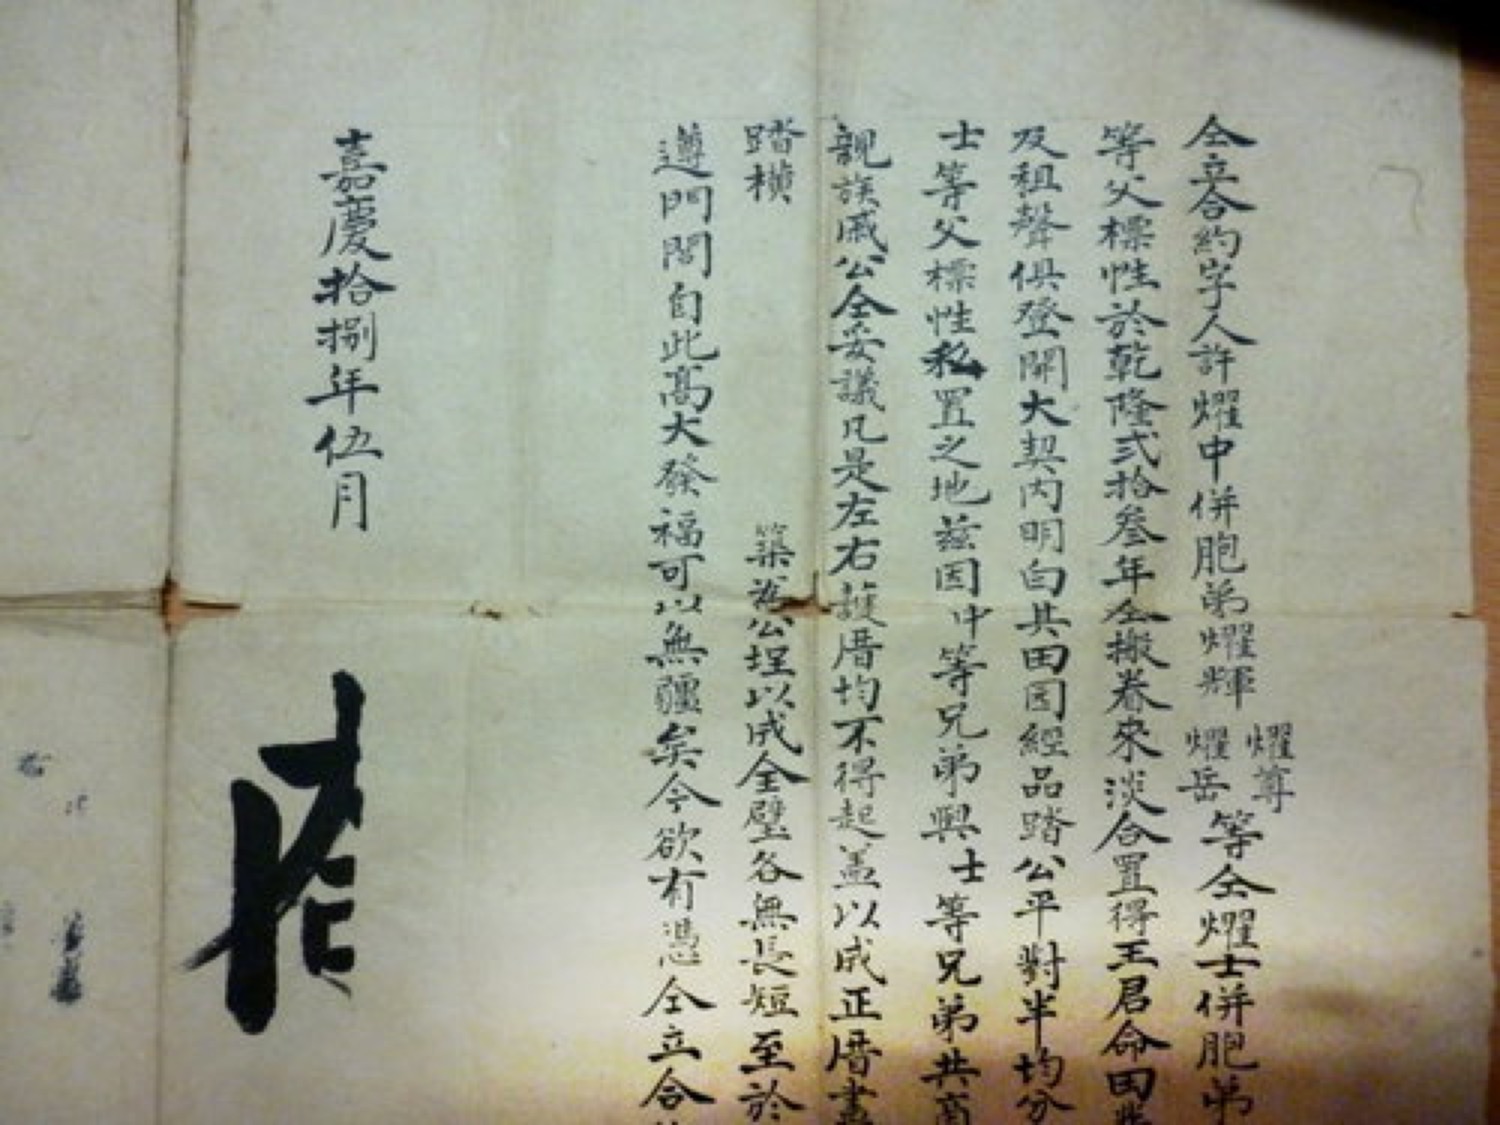 仝立合約字人許燿中併胞弟燿輝燿尊燿岳等仝燿士併胞弟
等父標性於乾隆弍拾叄年仝搬眷來淡合置得王君命田
及祖聲俱登開大契内明白其田園經品踏公平對半均分
士等父標性私置之地茲因中等兄弟與士等兄弟共商
親族戚公仝妥議凡是左右護厝均不得起盖以成正厝
踏横 築為公埕以成全璧各無長短至於
遵門閭自此高大發福可以無疆矣今欲有憑仝立合
嘉慶拾捌年伍月